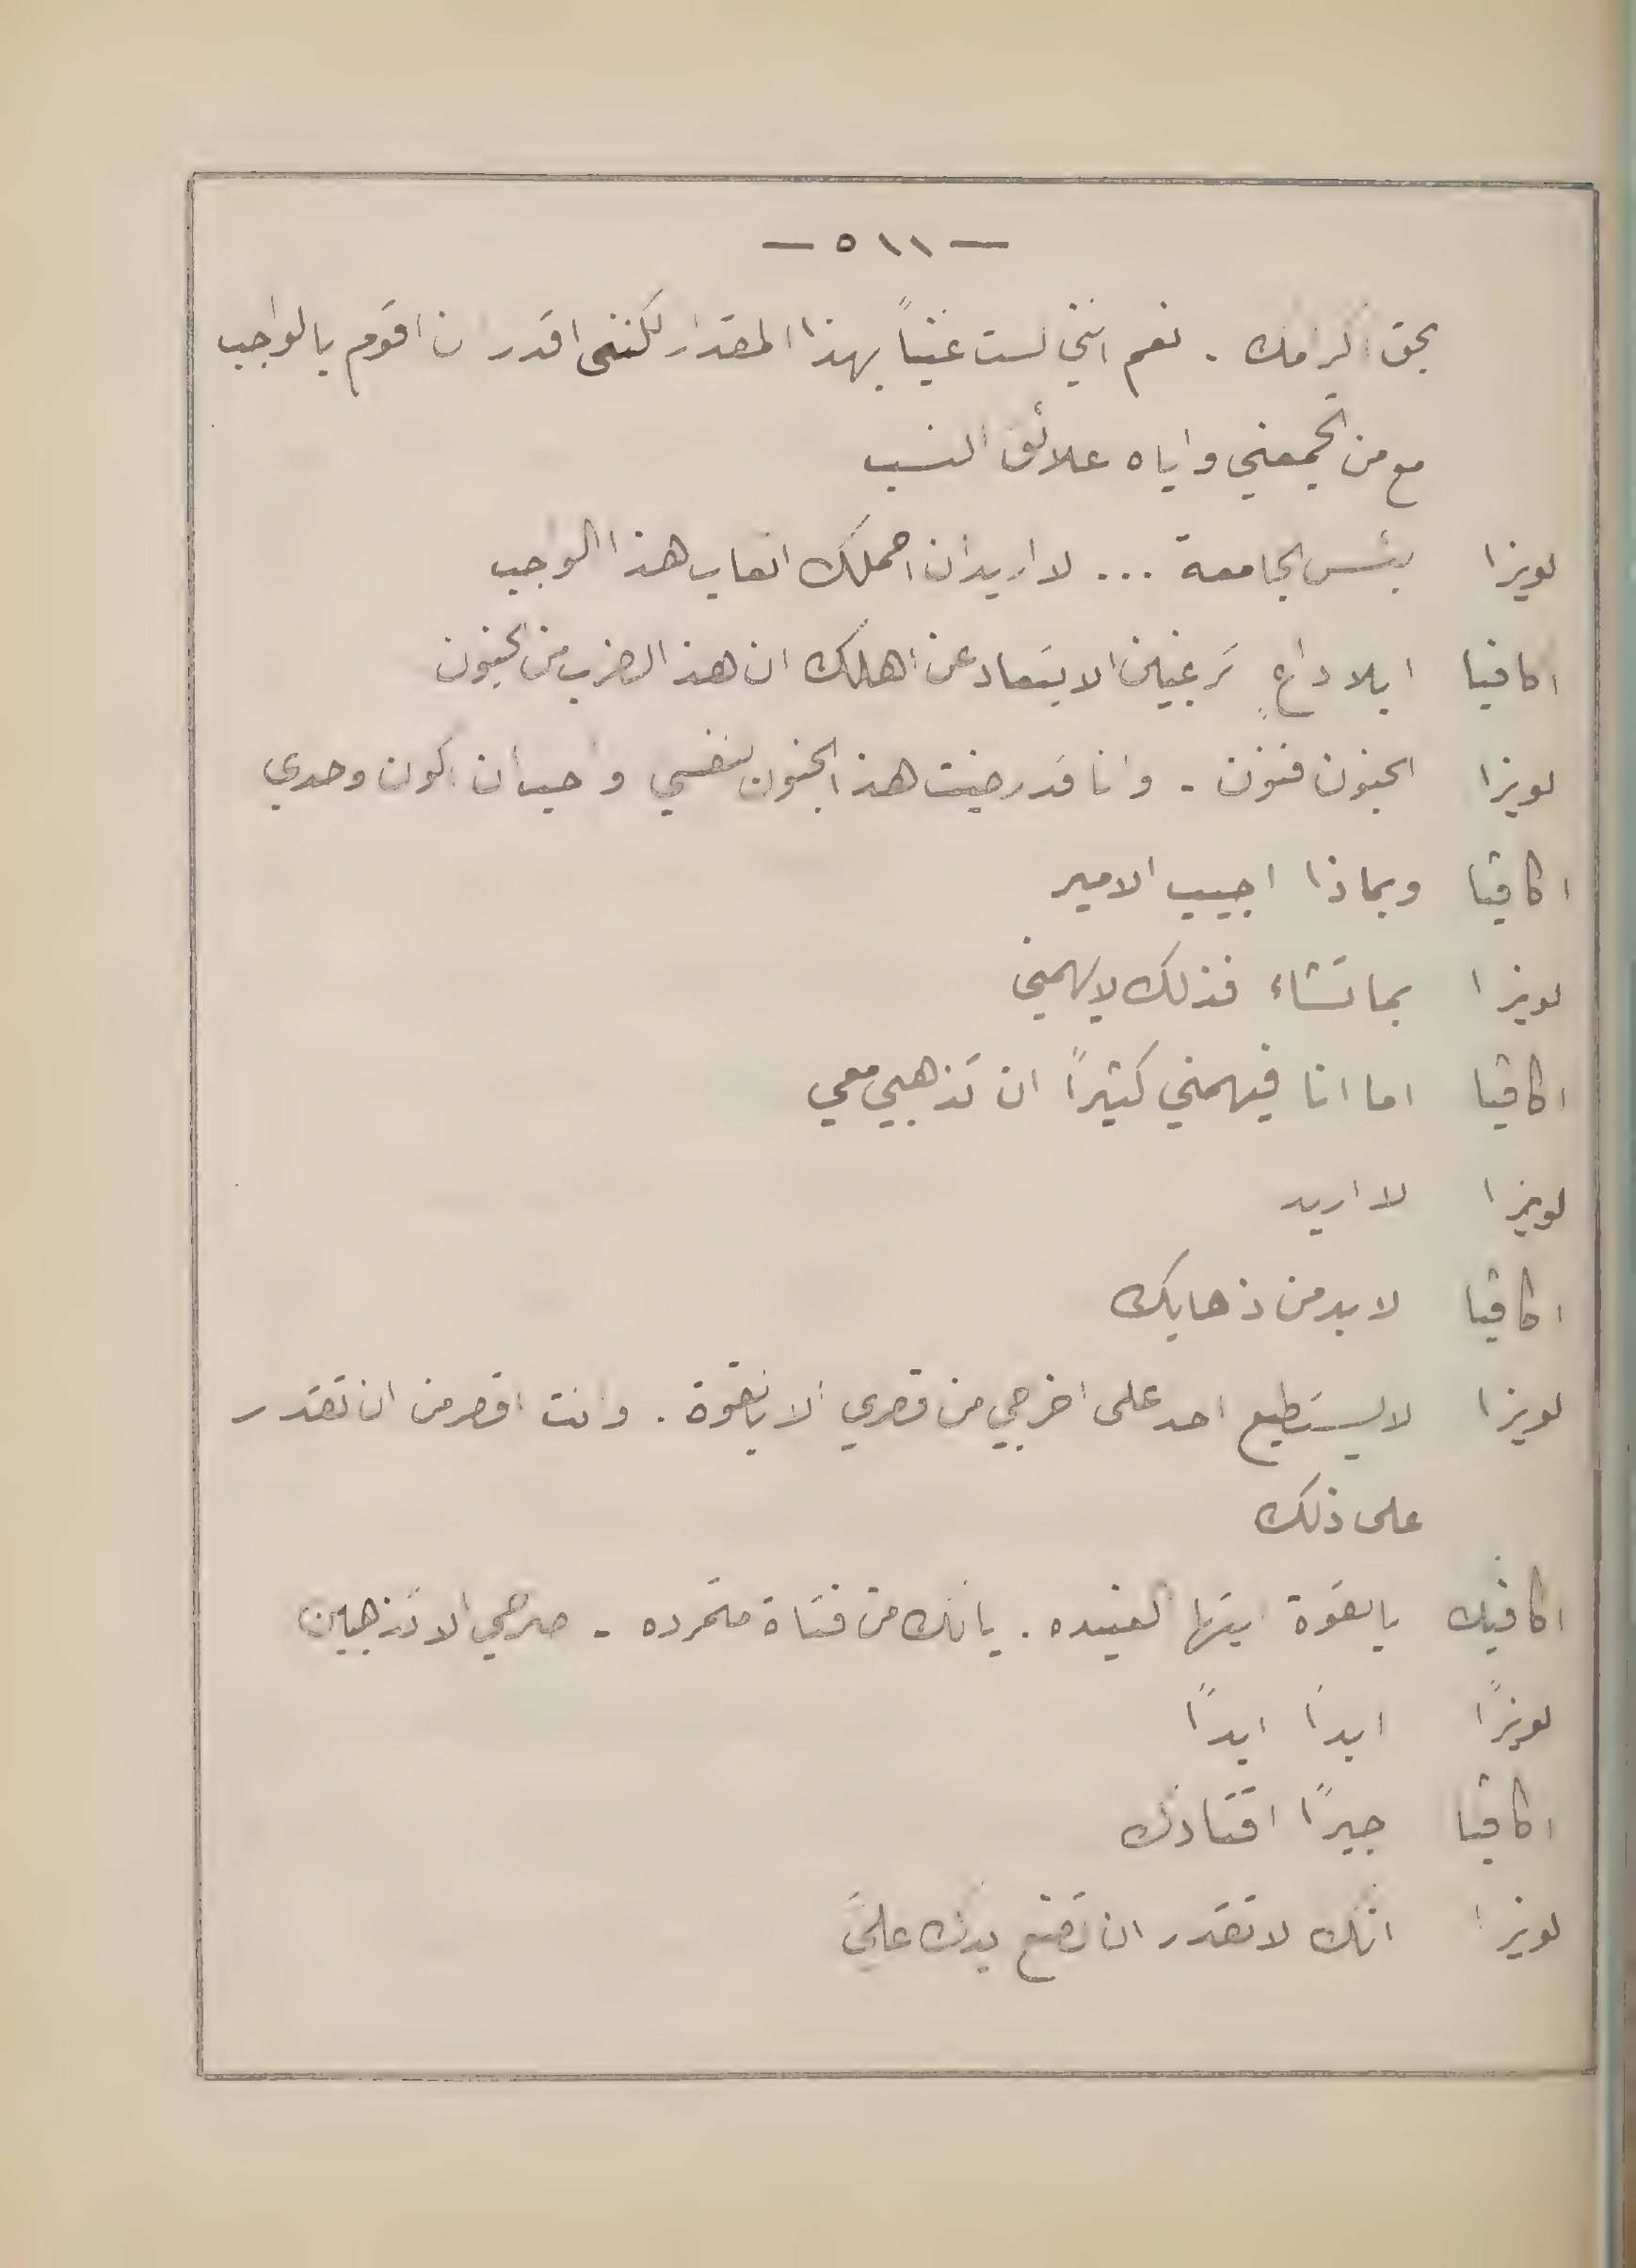 — ٥١١ —
بحق اكرامك . نعم انني لست غنياً بهذا المقدار لكنني اقدر ان اقوم بالواجب
مع من تجمعني واياه علائق النسب
لويزا بئس الجامعة ... لا اريد ان احملك اتعاب هذا الواجب
اكاڤيا ابلا داعٍ ترغبين الابتعاد عن اهلك ان هذا لضرب من الجنون
لويزا الجنون فنون - وانا قد رضيت هذا الجنون لنفسي واحب ان اكون وحدي
اكاڤيا وبماذا اجيب الامير
لويزا بما تشاء فذلك لا يهمني
اكاڤيا اما انا فيهمني كثيراً ان تذهبي معي
لويزا لا اريد
اكاڤيا لا بد من ذهابك
لويزا لا يستطيع احد على اخرجي من قصري الا بالقوة . وانت اقصر من ان تقدر
على ذلك
اكاڤيا بالقوة ايتها العنيده . يا لك من فتاة متمرده - صرحي الا تذهبين
لويزا ابداً ابداً
اكاڤيا جبراً اقتادك
لويزا انك لا تقدر ان تضع يدك عليَّ